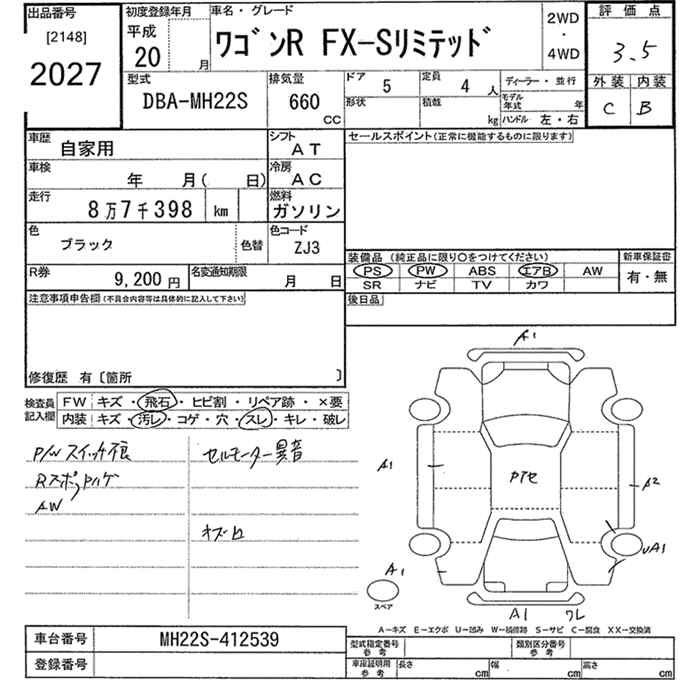 出品番号
[2148]
2027
初度登録年月
平成
20 月
車名・グレード
ワゴンR FX-Sリミテッド
2WD
・
4WD
評価点
3.5
外装 内装
C B
型式
DBA-MH22S
排気量
660
CC
ドア
5
定員
4 人
形状
積載
kg
ディーラー・並行
モデル年式 年
ハンドル 左・右
車歴
自家用
シフト
AT
車検
年 月( 日)
冷房
AC
走行
8万7千398 km
燃料
ガソリン
色
ブラック
色替
色コード
ZJ3
R券
9,200円
名変通知期限
月 日
セールスポイント(正常に機能するものに限ります)
装備品 (純正品に限り〇をつけてください)
PS PW ABS エアB AW
SR ナビ TV カワ
新車保証書
有・無
後日品
注意事項申告欄(不具合内容等は具体的に記入して下さい)
修復歴 有〔箇所 〕
検査員
記入欄
FW キズ・飛石・ヒビ割・リペア跡・×要
内装 キズ・汚レ・コゲ・穴・スレ・キレ・破レ
P/W スイッチ
AW
セルモーター異音
A1
A1
A2
A1
A1
スペア
A1 ワレ
A-キズ E-エクボ U-凹み W-補修跡 S-サビ C-腐食 XX-交換済
車台番号
MH22S-412539
登録番号
型式指定番号
参考
類別区分番号
参考
車庫証明用
参考
長さ cm
幅 cm
高さ cm